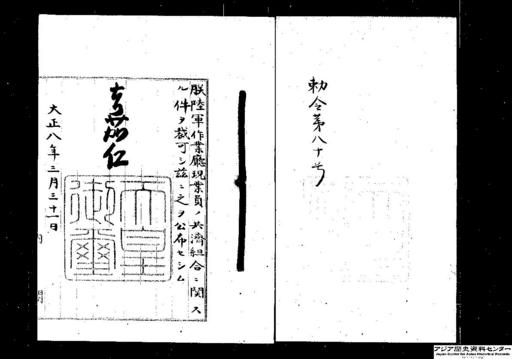 勅令第八十号
朕陸軍作業廳現業員ノ共済組合ニ関ス
ル件ヲ裁可シ茲ニ之ヲ公布セシム
嘉仁
天皇
御璽
大正八年三月三十一日
内
閣
アジア歴史資料センター
Japan Center for Asian Historical Records